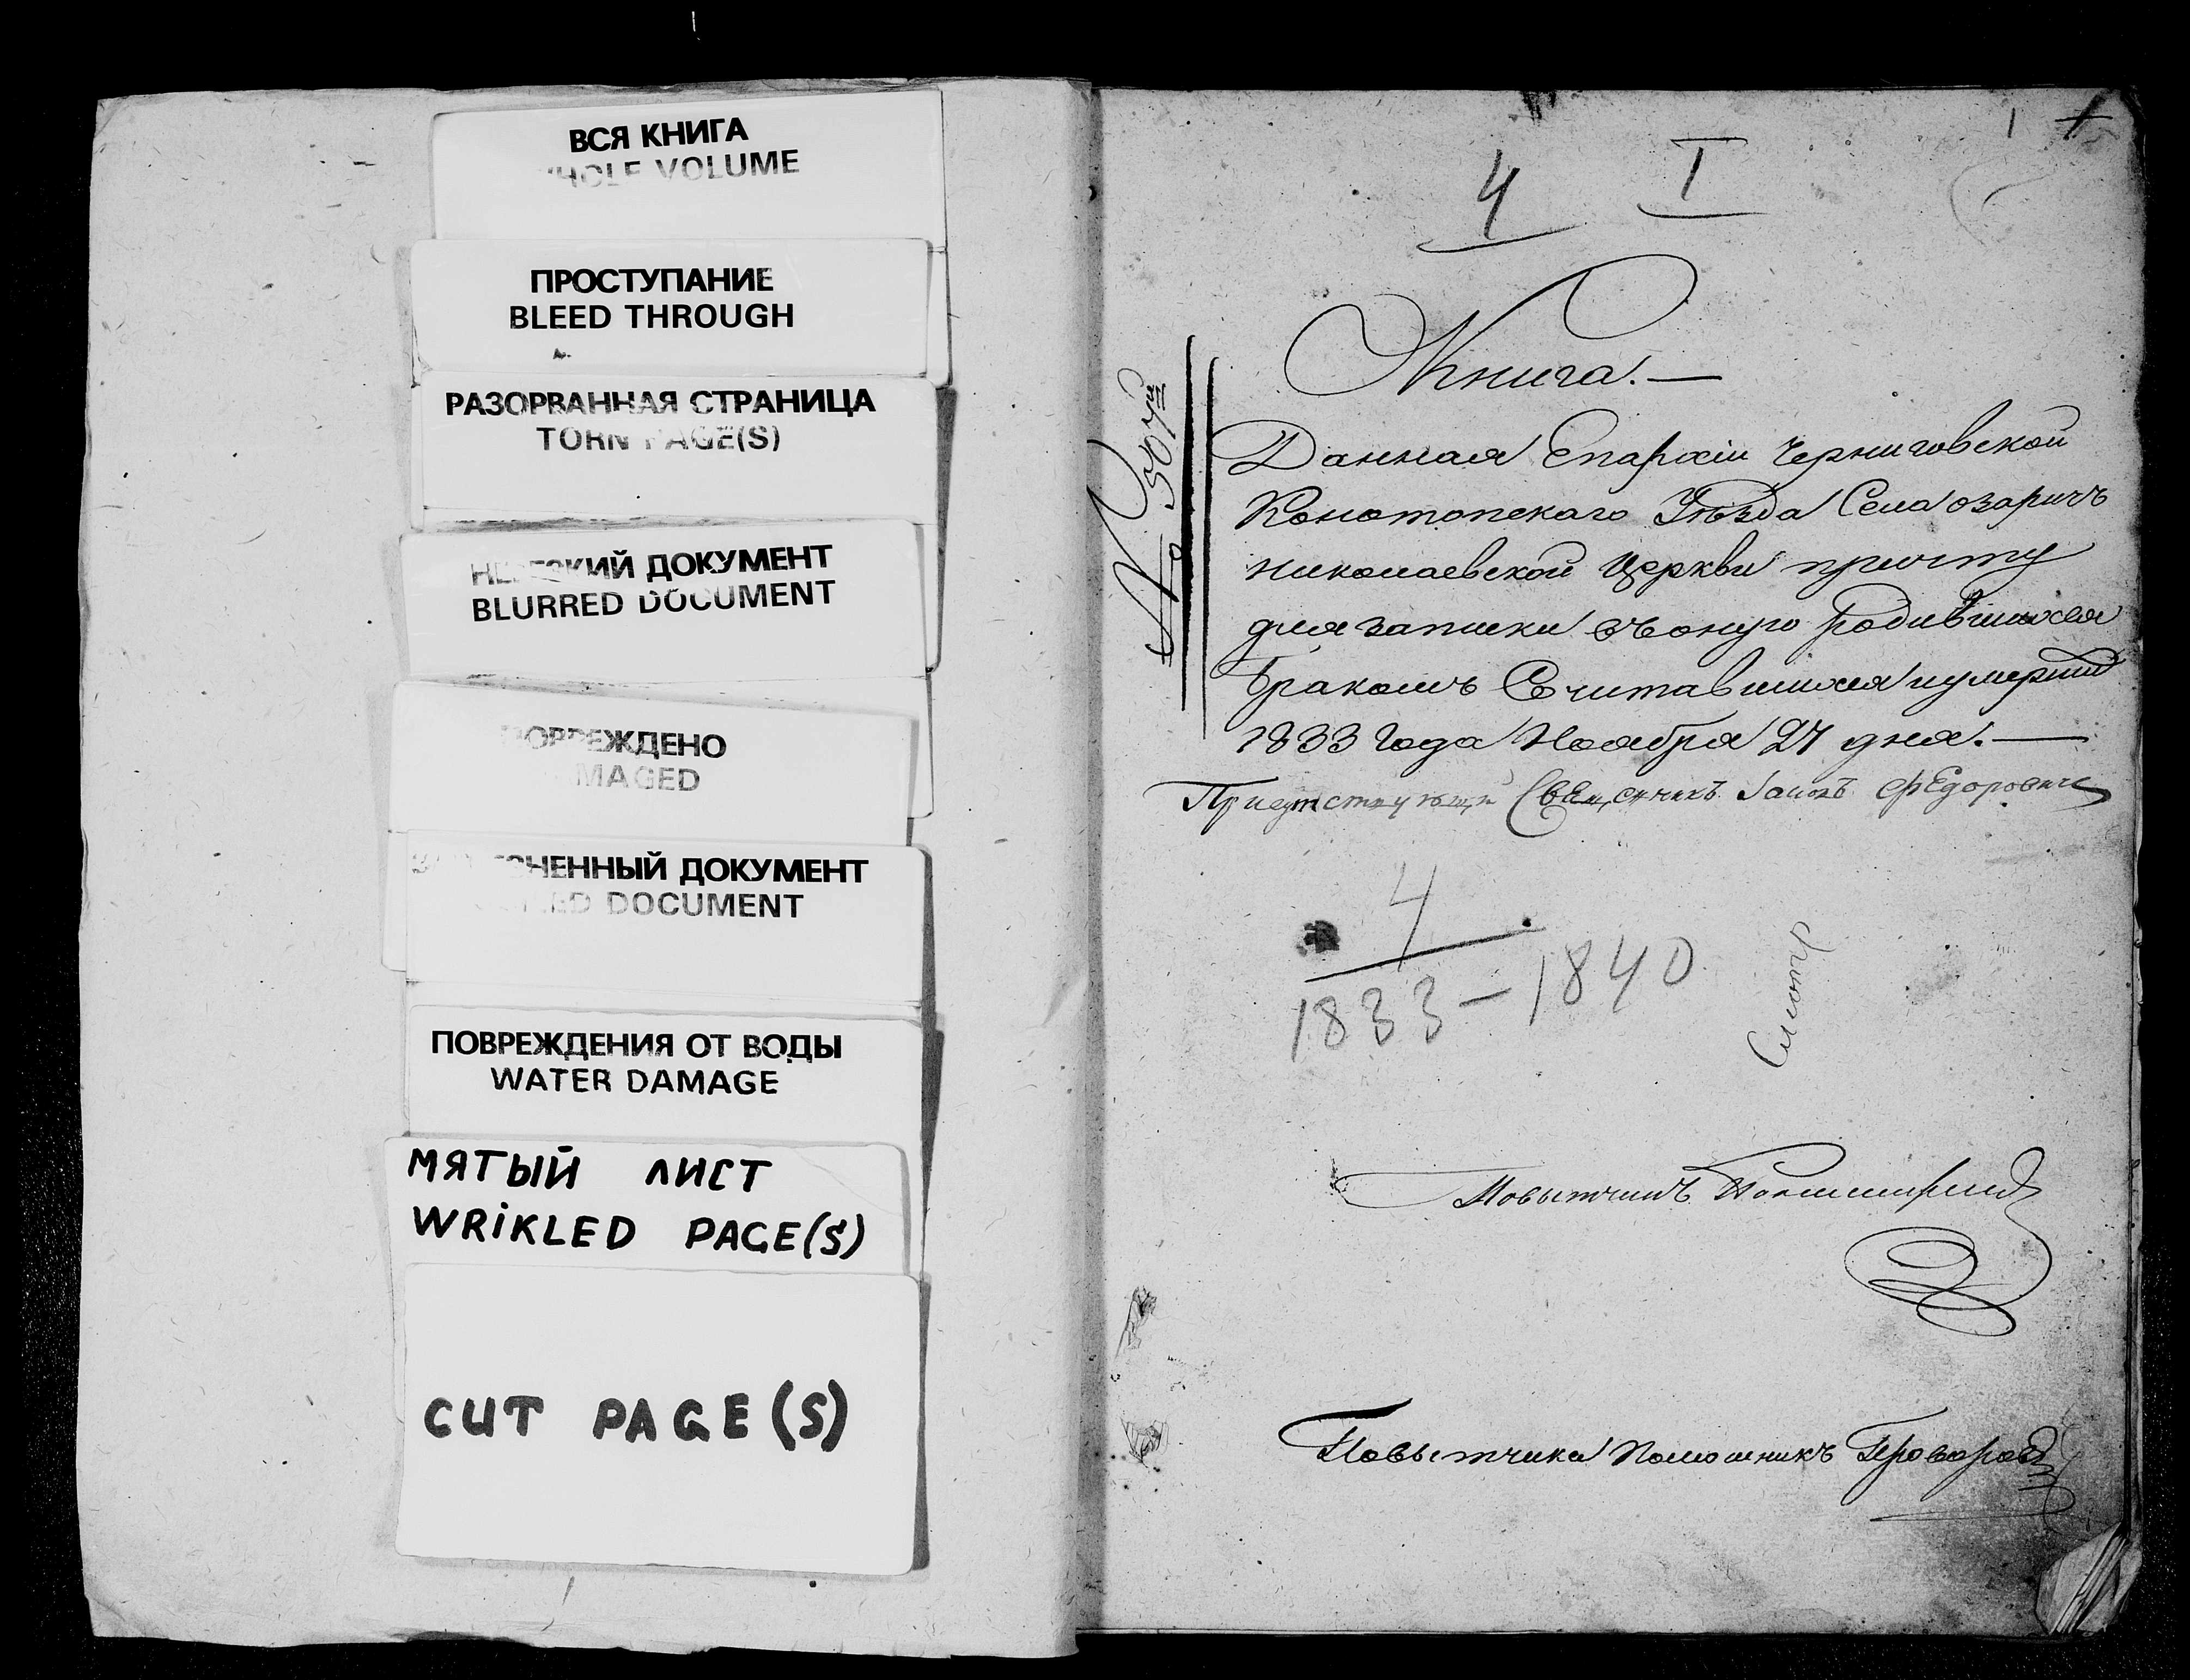 ВСЯ КНИГА
WHOLE VOLUME
ПРОСТУПАНИЕ
BLEED THROUGH
РАЗОРВАННАЯ СТРАНИЦА
TORN PAGE(S)
НЕРЕЗКИЙ ДОКУМЕНТ
BLURRED DOCUMENT
ПОВРЕЖДЕНО
DAMAGED
ДОКУМЕНТ
DOCUMENT
ПОВРЕЖДЕНИЯ ОТ ВОДЫ
WATER DAMAGE
МЯТЫЙ ЛИСТ
WRIKLED PAGE(S)
CUT PAGE(S)
1
4 I
Книга.—
Данная Епархіи Черниговской
Конотопскаго Уѣзда Села озаричъ
николаевской Церкви причту
для записки въ оную родившихся
бракомъ Сочитавшихся иумершихъ
1833 Года Ноября 27 дня.—
Присутствующій Священникъ Іаковъ Федоровичъ
4
1833-1840
Смотр
Повытчикъ
Повытчика Помошникъ